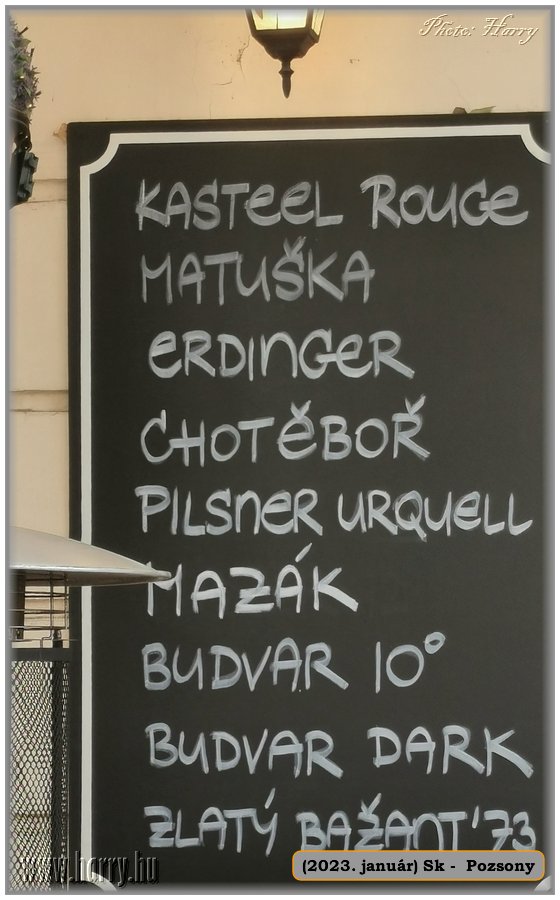 Photo: Harry
KASTEEL ROUGE
MATUŠKA
ERDINGER
CHOTĚBOŘ
PILSNER URQUELL
MAZÁK
BUDVAR 10°
BUDVAR DARK
ZLATÝ BAŽANT '73
www.harry.hu
(2023. január) Sk - Pozsony